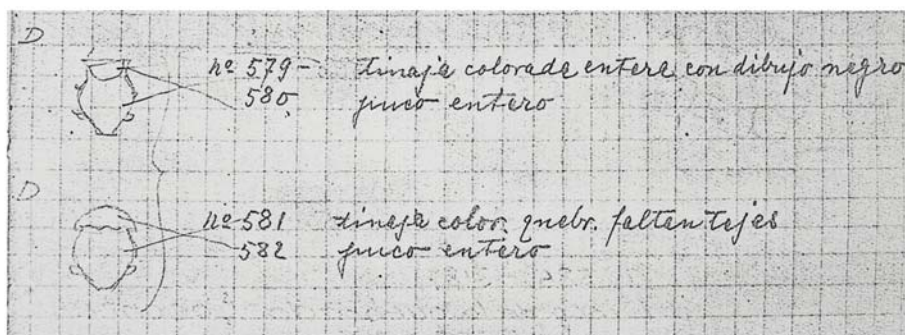 D
nº 579 - tinaja colorada entera con dibujo negro
580 puco entero
D
nº 581 tinaja color. quebr. faltan tejas
582 puco entero